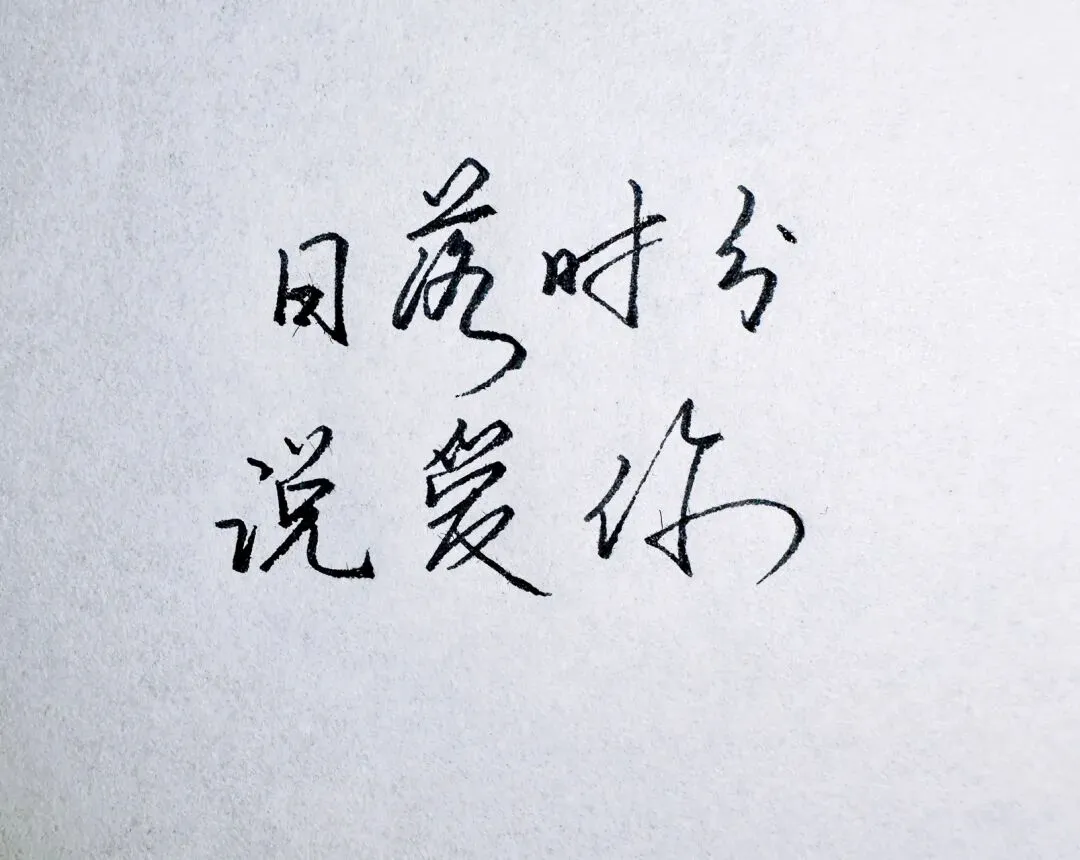 日落时分
说爱你